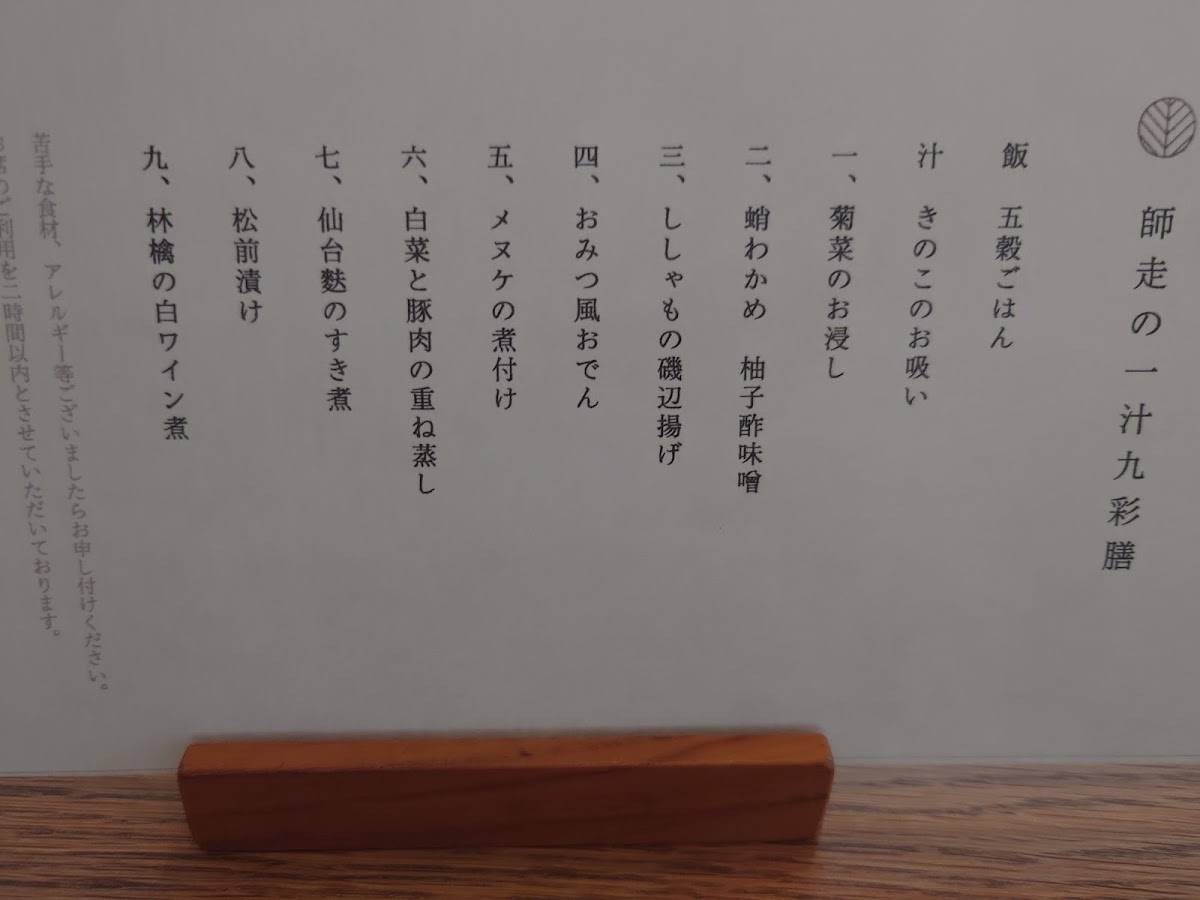 師走の一汁九彩膳
飯 五穀ごはん
汁 きのこのお吸い
一、菊菜のお浸し
二、蛸わかめ 柚子酢味噌
三、ししゃもの磯辺揚げ
四、おみつ風おでん
五、メヌケの煮付け
六、白菜と豚肉の重ね蒸し
七、仙台麩のすき煮
八、松前漬け
九、林檎の白ワイン煮
苦手な食材、アレルギー等ございましたらお申し付けください。
お席のご利用を二時間以内とさせていただいております。